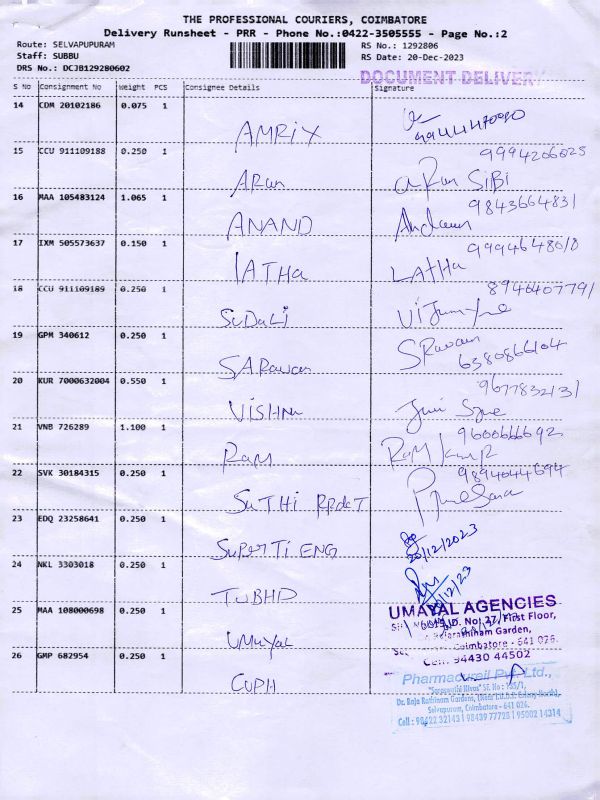 THE PROFESSIONAL COURIERS, COIMBATORE
Delivery Runsheet - PRR - Phone No.:0422-3505555 - Page No.:2
Route: SELVAPUPURAM
Staff: SUBBU
DRS No.: DCJB129280602
RS No.: 1292806
RS Date: 20-Dec-2023
DOCUMENT DELIVERY
S No Consignment No Weight PCS Consignee Details Signature
14 CDM 20102186 0.075 1
AMRIX
15 CCU 911109188 0.250 1 9994206025
ARun aRun SiBi
16 MAA 105483124 1.065 1 9843664831
ANAND
17 IXM 505573637 0.150 1 9994648010
LATHa LatHa
18 CCU 911109189 0.250 1 8946407791
SuDaLi
19 GPM 340612 0.250 1
SARavan 6380866104
20 KUR 7000632004 0.550 1 9677832131
VISHNu
21 VNB 726289 1.100 1 9600666692
RaM
22 SVK 30184315 0.250 1 9894044694
23 EDQ 23258641 0.250 1
SuPerTi ENG 20/12/2023
24 NKL 3303018 0.250 1
TUBHD
25 MAA 108000698 0.250 1
UMAYAL AGENCIES
No: 27, First Floor,
Garden,
Coimbatore - 641 026.
Cell: 94430 44502
UMayal
26 GMP 682954 0.250 1
CUPH
Pharmacureil Pvt. Ltd.,
Dr. Raja Rathinam Gardens,
Selvapuram, Coimbatore - 641 026.
Cell : 90422 32143 | 98439 77728 | 95002 14314